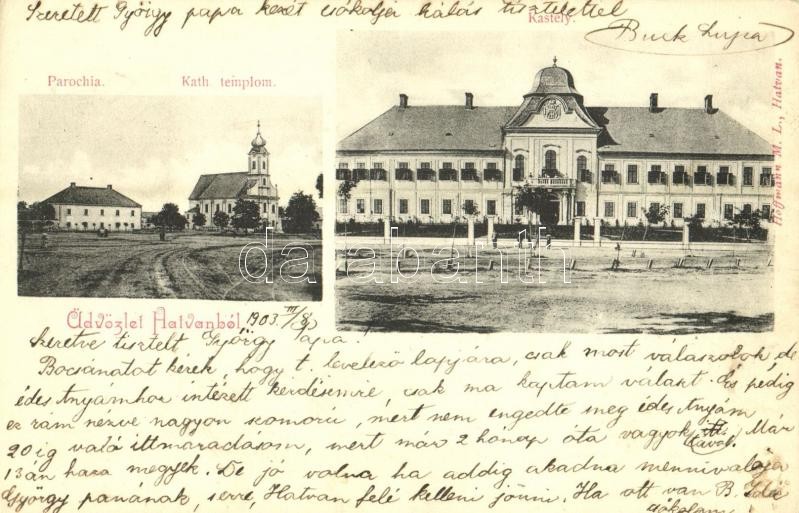 Szeretett György papa kezét csókolja hálás tisztelettel
Buck Lujza
Kastély.
Parochia.
Kath. templom.
Hoffmann M. L., Hatvan.
darabanth
Üdvözlet Hatvanból 1903. III/8
Szeretve tisztelt György Papa.
Bocsánatot kérek, hogy t. levelező lapjára, csak most válaszolok, de
édes Anyámhoz intézett kérdésemre, csak ma kaptam választ. És pedig
ez rám nézve nagyon szomorú, mert nem engedte meg édes Anyám
20 ig való ittmaradásom, mert már 2 hónap óta vagyok távol. Már
13 án haza megyek. De jó volna ha addig akadna mennivalója
György papának, erre, Hatvan felé kelleni jönni. Ha ott van B. Ida